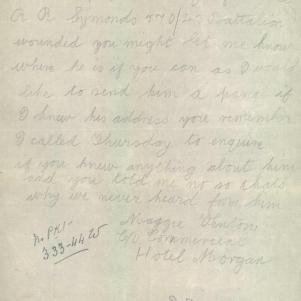 A R Symonds 5770/23 Battalion
wounded you might let me know
where he is if you can as I would
like to send him a parcel if
I knew his address you remember
I called Thursday to enquire
if you knew anything about him
and you told me no so that's
why we never heard from him
Maggie Venton
C/o Commercial
Hotel Morgan
No
333-44 W